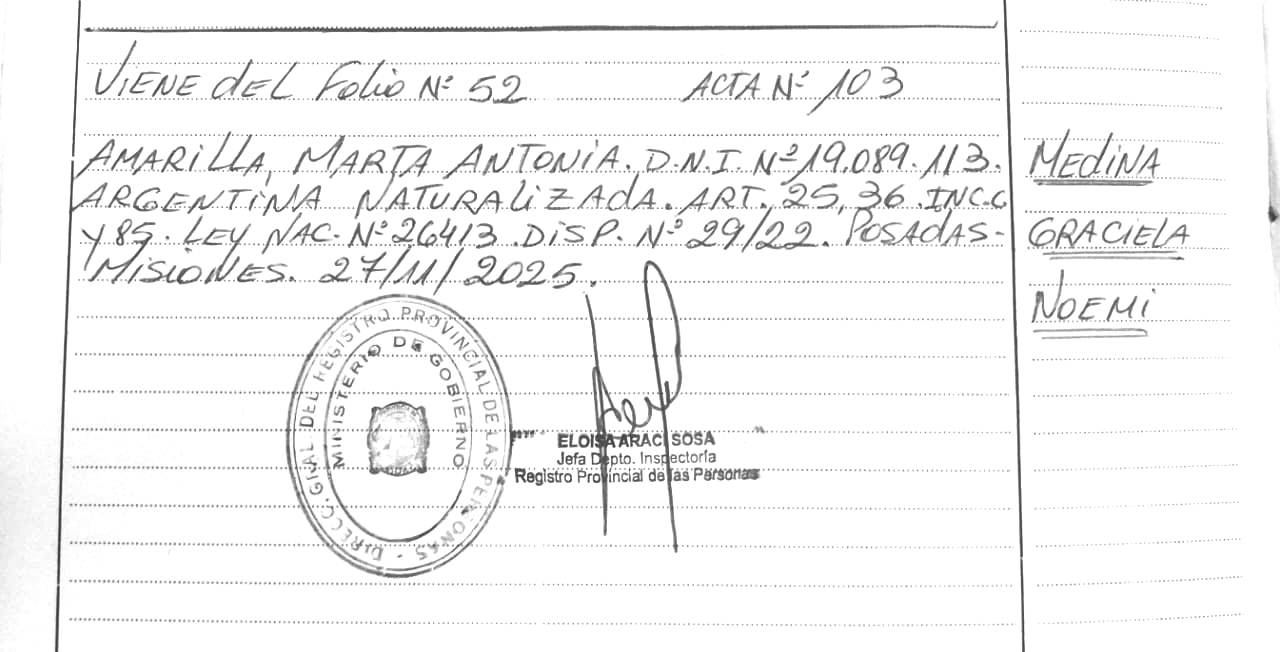 VIENE dEL Folio Nº 52 ACTA Nº 103
AMARILLA, MARTA ANTONIA. D.N.I. Nº 19.089.113.
ARGENTINA NATURALIZADA. ART. 25, 36. INC.C
Y 85. LEY NAC. Nº 26413. DISP. Nº 29/22. POSADAS-
MISIONES. 27/11/2025.
MEDINA
GRACIELA
NOEMI
DIRECC. GRAL. DEL REGISTRO PROVINCIAL DE LAS PERSONAS -
MINISTERIO DE GOBIERNO
ELOISA ARACI SOSA
Jefa Depto. Inspectoría
Registro Provincial de las Personas